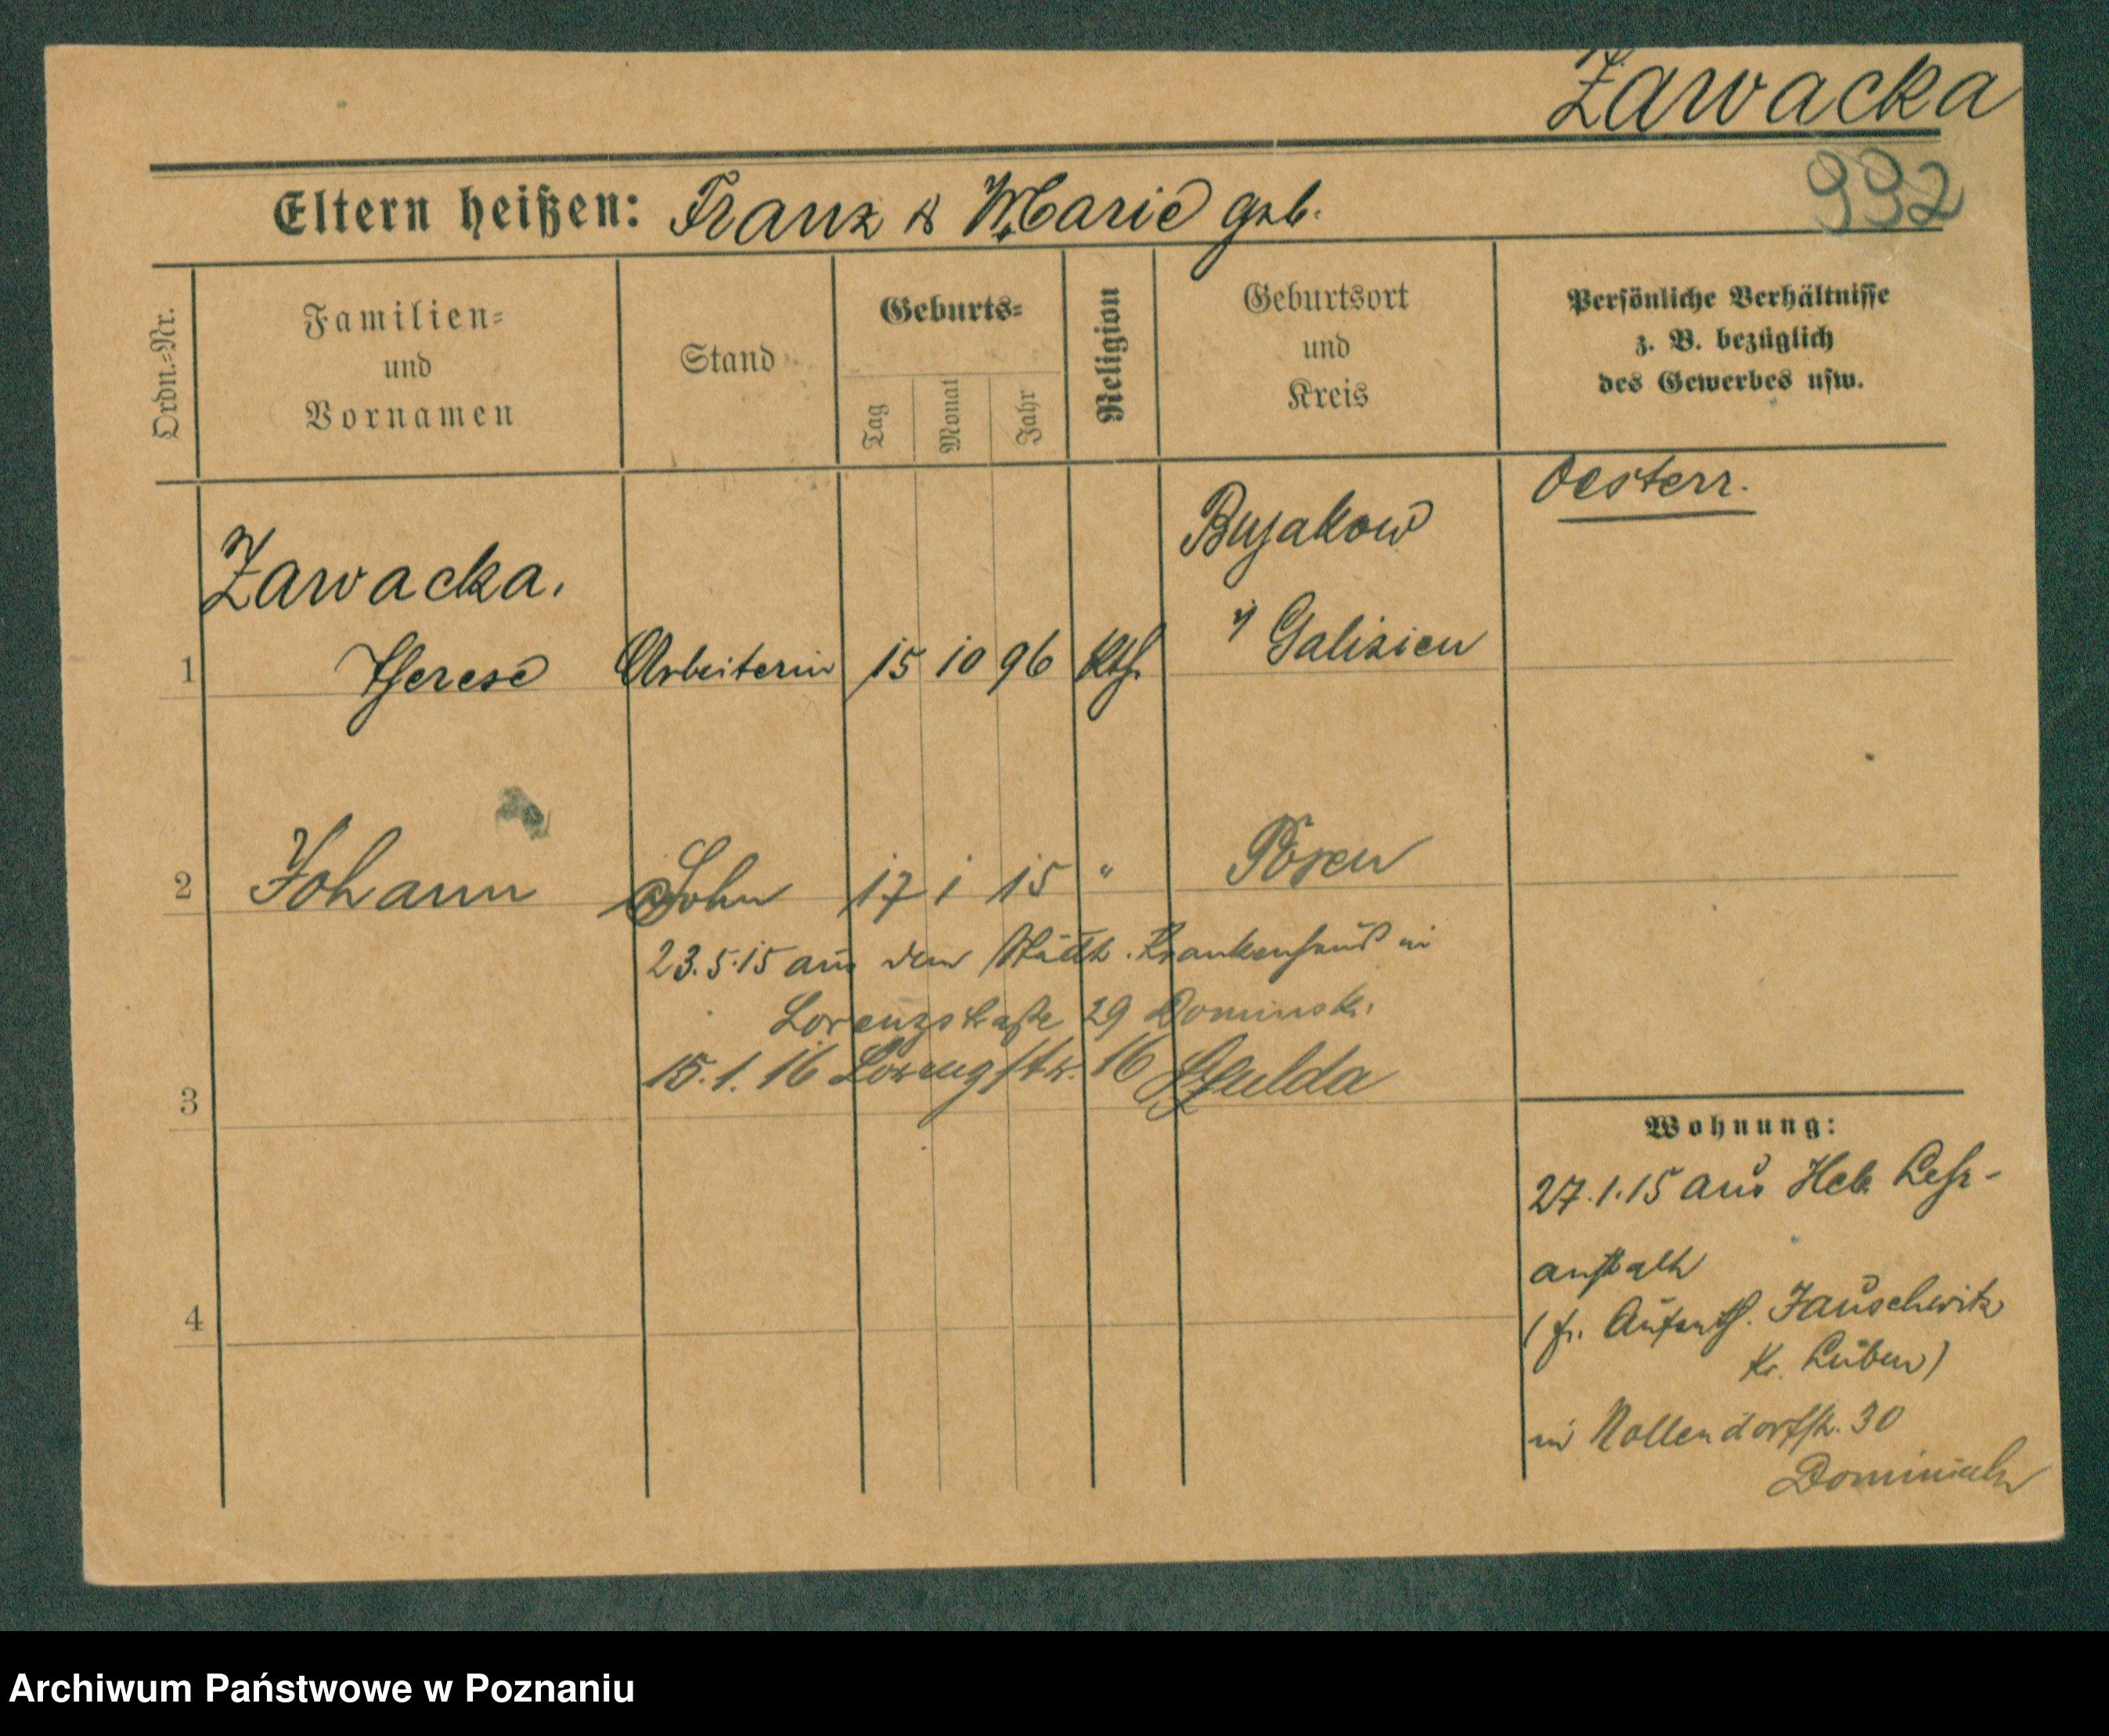 Zawacka
932
Eltern heißen: Franz & Marie geb.
Ordn.=Nr.
Familien=
und
Vornamen
Stand
Geburts=
Tag
Monat
Jahr
Religion
Geburtsort
und
Kreis
Persönliche Verhältnisse
z. B. bezüglich
des Gewerbes usw.
Oesterr.
Bujakow
Zawacka.
i/ Galizien
1 Therese Arbeiterin 15 10 96 kth.
2 Johann Sohn 17 1 15 " Posen
23.5.15 aus dem Städt. Krankenhaus in
Lorenzstraße 29 Dominsk.
15.1.16 Lorenzstr. 16
3
Wohnung:
27.1.15 aus Heb. Lehr-
anstalt
(fr. Aufenth. Jauschwitz
Kr. Lüben)
4
in Nollendorfstr. 30
Dominiak
Archiwum Państwowe w Poznaniu